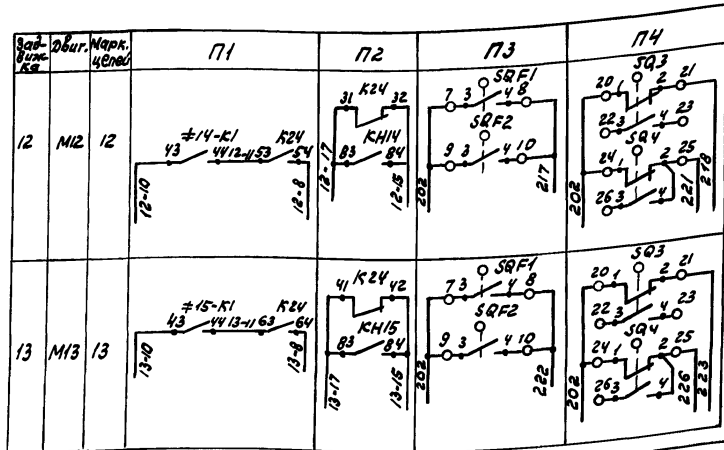 Зад-
виж-
ка
Двиг.
Марк.
цепей
П1
П2
П3
П4
12
М12
12
≠14-К1
К24
43
44
12-11
53
54
12-10
12-8
К24
31
32
КН14
83
84
12-17
12-15
SQF1
7 3
4 8
SQF2
9 3
4 10
202
217
SQ3
20 1
2 21
22 3
4 23
SQ4
24 1
2 25
26 3
4
202
221
218
13
М13
13
≠15-К1
К24
43
44
13-11
63
64
13-10
13-8
К24
41
42
КН15
83
84
13-17
13-15
SQF1
7 3
4 8
SQF2
9 3
4 10
202
222
SQ3
20 1
2 21
22 3
4 23
SQ4
24 1
2 25
26 3
4
202
226
223